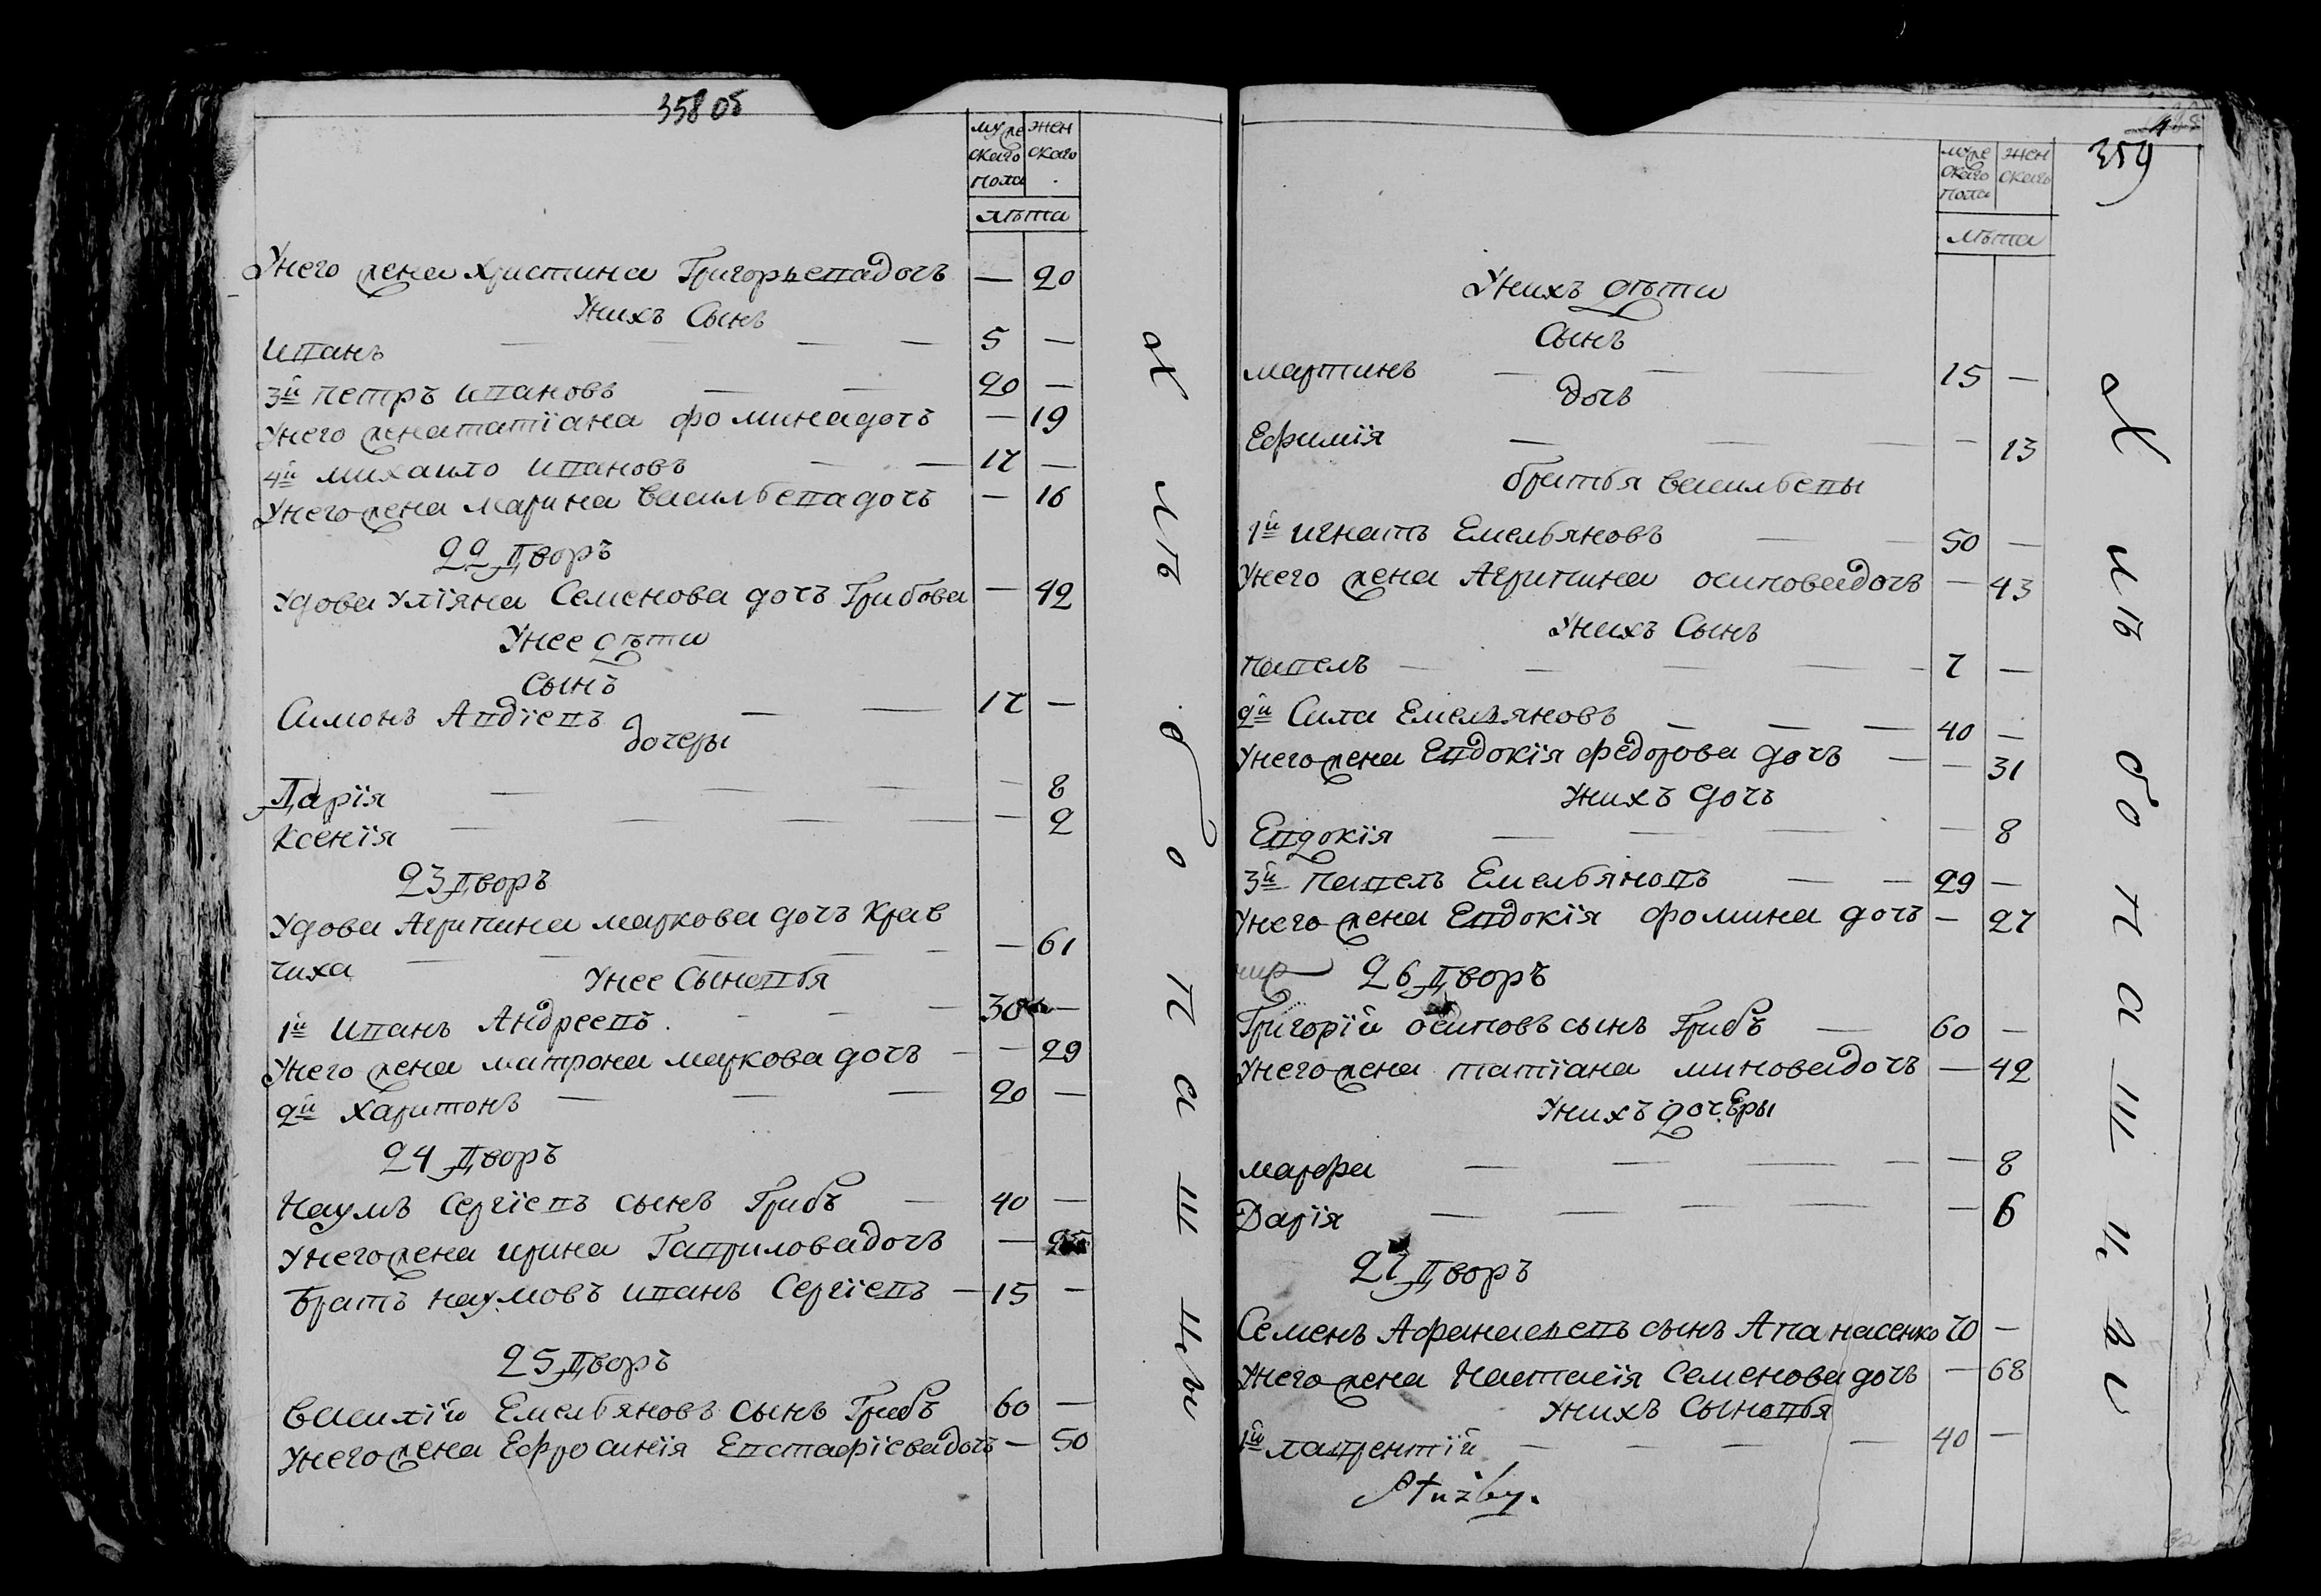 358 об
муже
ского
пола
жен
ского
лѣта
Унего жена Христина Григорьева дочъ — 20
Унихъ Сынъ
Иванъ 5 —
3й Петръ Ивановъ 20 —
Унего жена татїана фомина дочъ — 19
4й Михайло Ивановъ 17 —
Унего жена Марина Васильева дочъ — 16
22 Дворъ
Удова Улїяна Семенова дочъ Грибова — 42
Унее дѣти
Сынъ
Симонъ Авдїевъ 17 —
дочеры
Дарїя — 8
Ксенїя — 2
23 Дворъ
Удова Агрипина Маркова дочъ Крав
чиха — 61
Унее Сыновья
1й Иванъ Андреевъ 30 —
Унего жена Матрона Маркова дочъ — 29
2й Харитонъ 20 —
24 Дворъ
Наумъ Сергїевъ сынъ Грибъ 40 —
Унего жена Ирина Гаврилова дочъ —
Братъ Наумовъ Иванъ Сергїевъ 15 —
25 Дворъ
Василїй Емельяновъ сынъ Грибъ 60 —
Унего жена Ефросинїя Евстафїева дочъ — 50
359
муже
ского
пола
жен
ского
лѣта
Унихъ дѣти
Сынъ
Мартинъ 15 —
дочъ
Ефимїя — 13
братья Васильевы
1й Игнатъ Емельяновъ 50 —
Унего жена Агрипина осипова дочъ — 43
Унихъ Сынъ
Павелъ 7 —
2й Сила Емельяновъ 40 —
Унего жена Евдокїя федорова дочъ — 31
Унихъ дочъ
Евдокїя — 8
3й Павелъ Емельяновъ 29 —
Унего жена Евдокїя фомина дочъ — 27
26 Дворъ
Григорїй осиповъ сынъ Грибъ 60 —
Унего жена татїана минова дочъ — 42
Унихъ дочеры
марфа — 8
Дарїя — 6
27 Дворъ
Семенъ Афанасьевъ сынъ Апанасенко 70 —
Унего жена Настасїя Семенова дочъ — 68
Унихъ Сыновья
1й лаврентїй 40 —